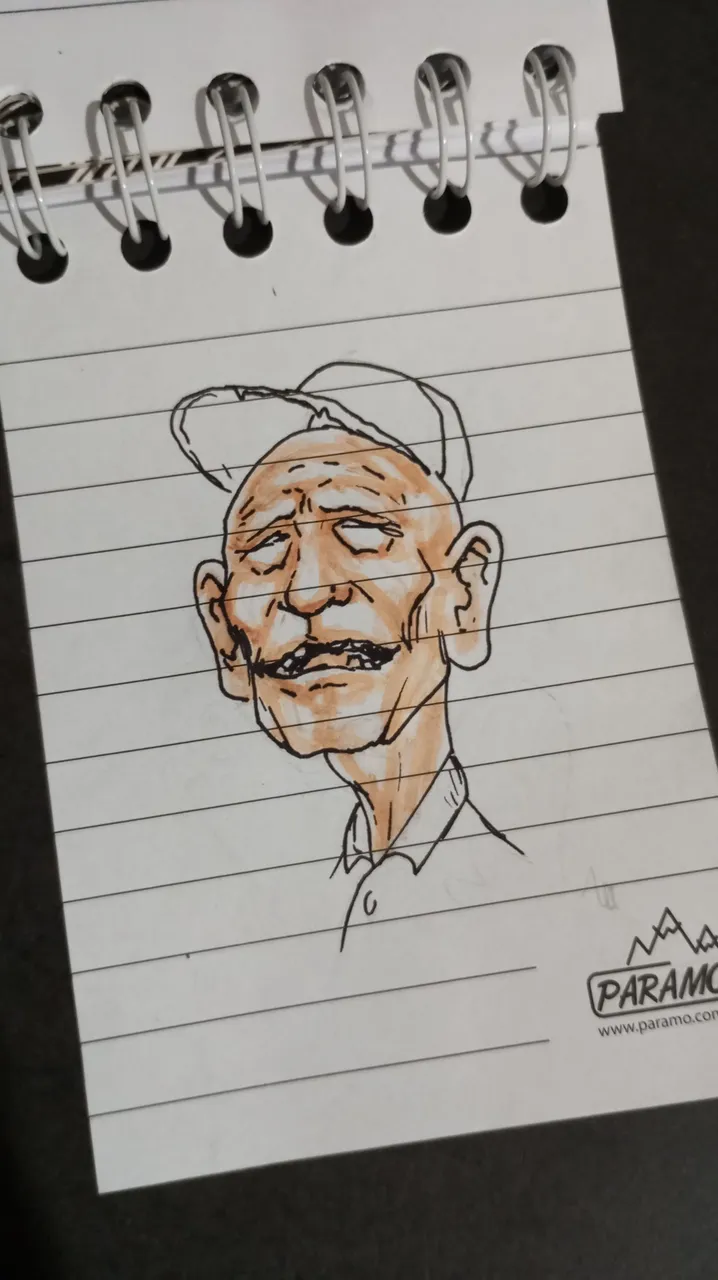 PARAMO
www.paramo.com